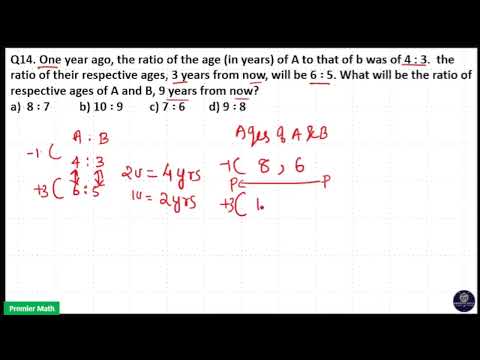 Q14. One year ago, the ratio of the age (in years) of A to that of b was of 4 : 3. the
ratio of their respective ages, 3 years from now, will be 6 : 5. What will be the ratio of
respective ages of A and B, 9 years from now?
a) 8 : 7 b) 10 : 9 c) 7 : 6 d) 9 : 8
A : B
-1 ( 4 : 3
+3 ( 6 : 5
2u = 4 yrs
1u = 2 yrs
Ages of A & B
-1 ( 8 , 6
P P
+3 ( 1
Premier Math